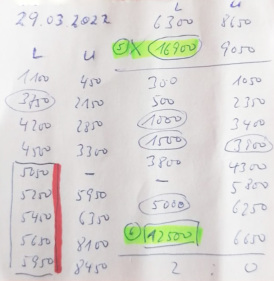 29.03.2022
L U
1100 450
3750 2150
4200 2850
4500 3300
5050 -
5250 5950
5400 6350
5650 8100
5950 8450
L U
6300 8650
5) X 16900 9050
300 1050
500 2350
1000 3400
1500 3800
3800 4300
- 5800
5000 6250
6 12500 6650
2 : 0